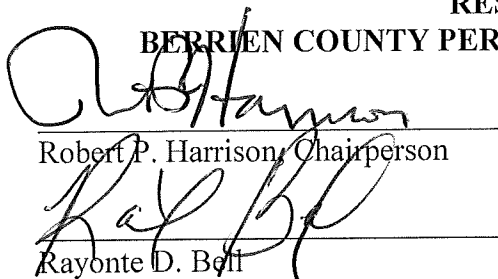 RES
BERRIEN COUNTY PER
Robert P. Harrison, Chairperson
Rayonte D. Bell